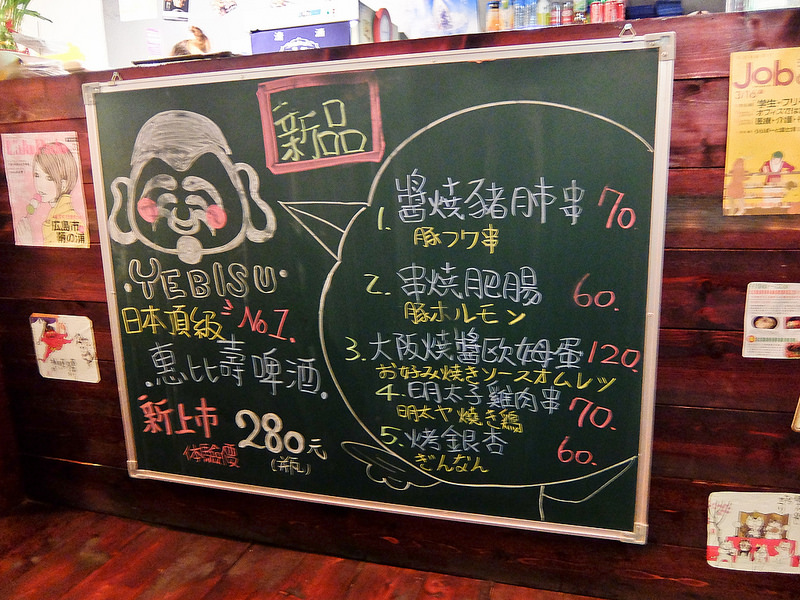 新品
YEBISU
日本頂級 No1.
惠比壽啤酒.
新上市 280元
体驗價 (瓶)
1. 醬燒豬肺串 70
豚フワ串
2. 串燒肥腸 60.
豚ホルモン
3. 大阪燒醬歐姆蛋 120.
お好み焼きソースオムレツ
4. 明太子雞肉串 70.
明太ヤ焼き鶏
5. 烤銀杏 60.
ぎんなん
Job
3/16
学生・フリ
広島市
鞆の浦